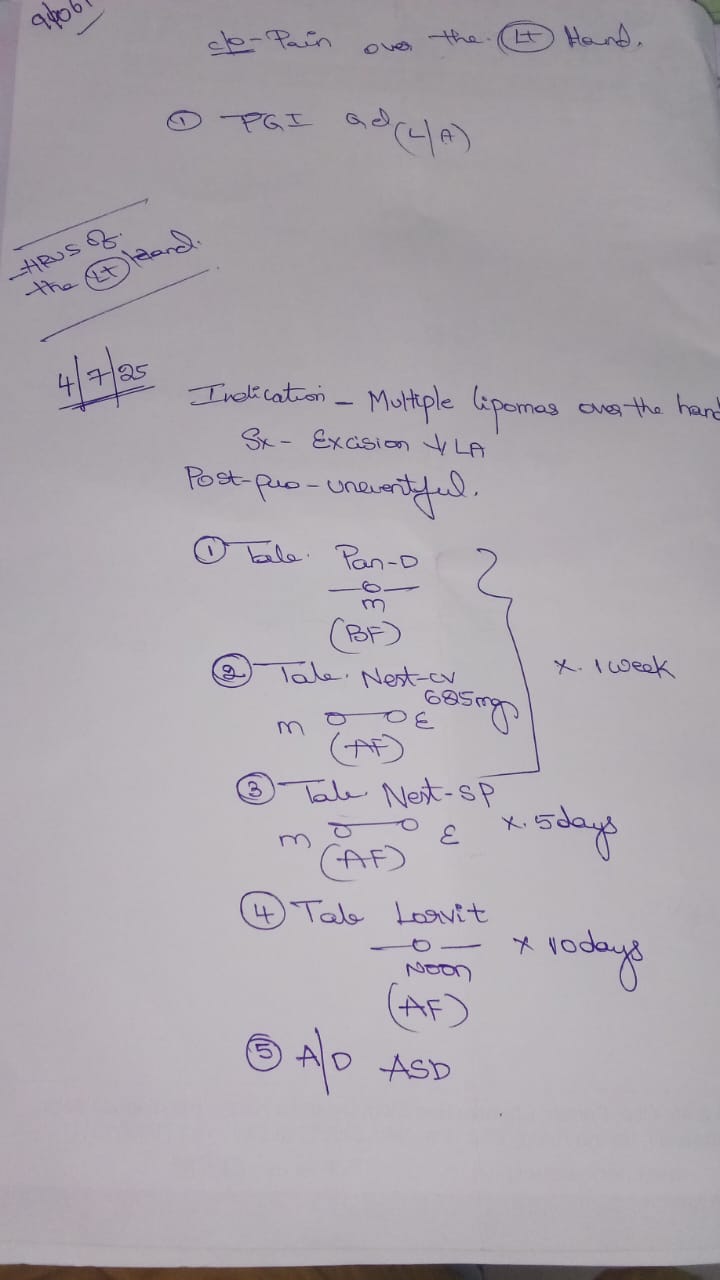 c/o - Pain over the (Lt) Hand.
① PGI ad (L/A)
HRUS of
the (Lt) hand.
4/7/25
Indication - Multiple lipomas over the hand
Sx - Excision ↓ LA
Post-puo - uneventful.
① Tab. Pan-D
—o—
m
(BF)
② Tab. Nest-cv
625mg
m o—o E
(AF)
x. 1 week
③ Tab Nest-SP
m o—o E x. 5days
(AF)
④ Tab Lorvit
—o— x 10days
Noon
(AF)
⑤ A/D ASD